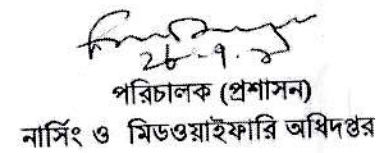 পরিচালক (প্রশাসন)
নার্সিং ও মিডওয়াইফারি অধিদপ্তর